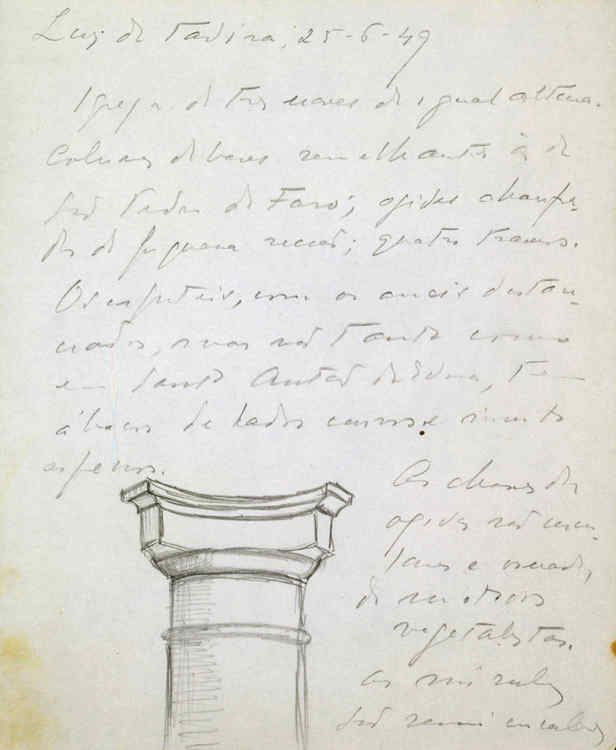 Luz de Tavira, 25-6-49
Igreja de três naves de igual altura.
Colunas de bases semelhantes às de
são Pedro de Faro; ogivas chanfra-
das de pequena secção; quatro tramos.
Os capiteis, com os aneis distan-
ciados, mas não tanto como
em Santo Antão de Évora, têm
ábacos de lados curvos e muito
As chaves das
ogivas são circu-
lares e ornadas
de motivos
vegetalistas.
as
são semi